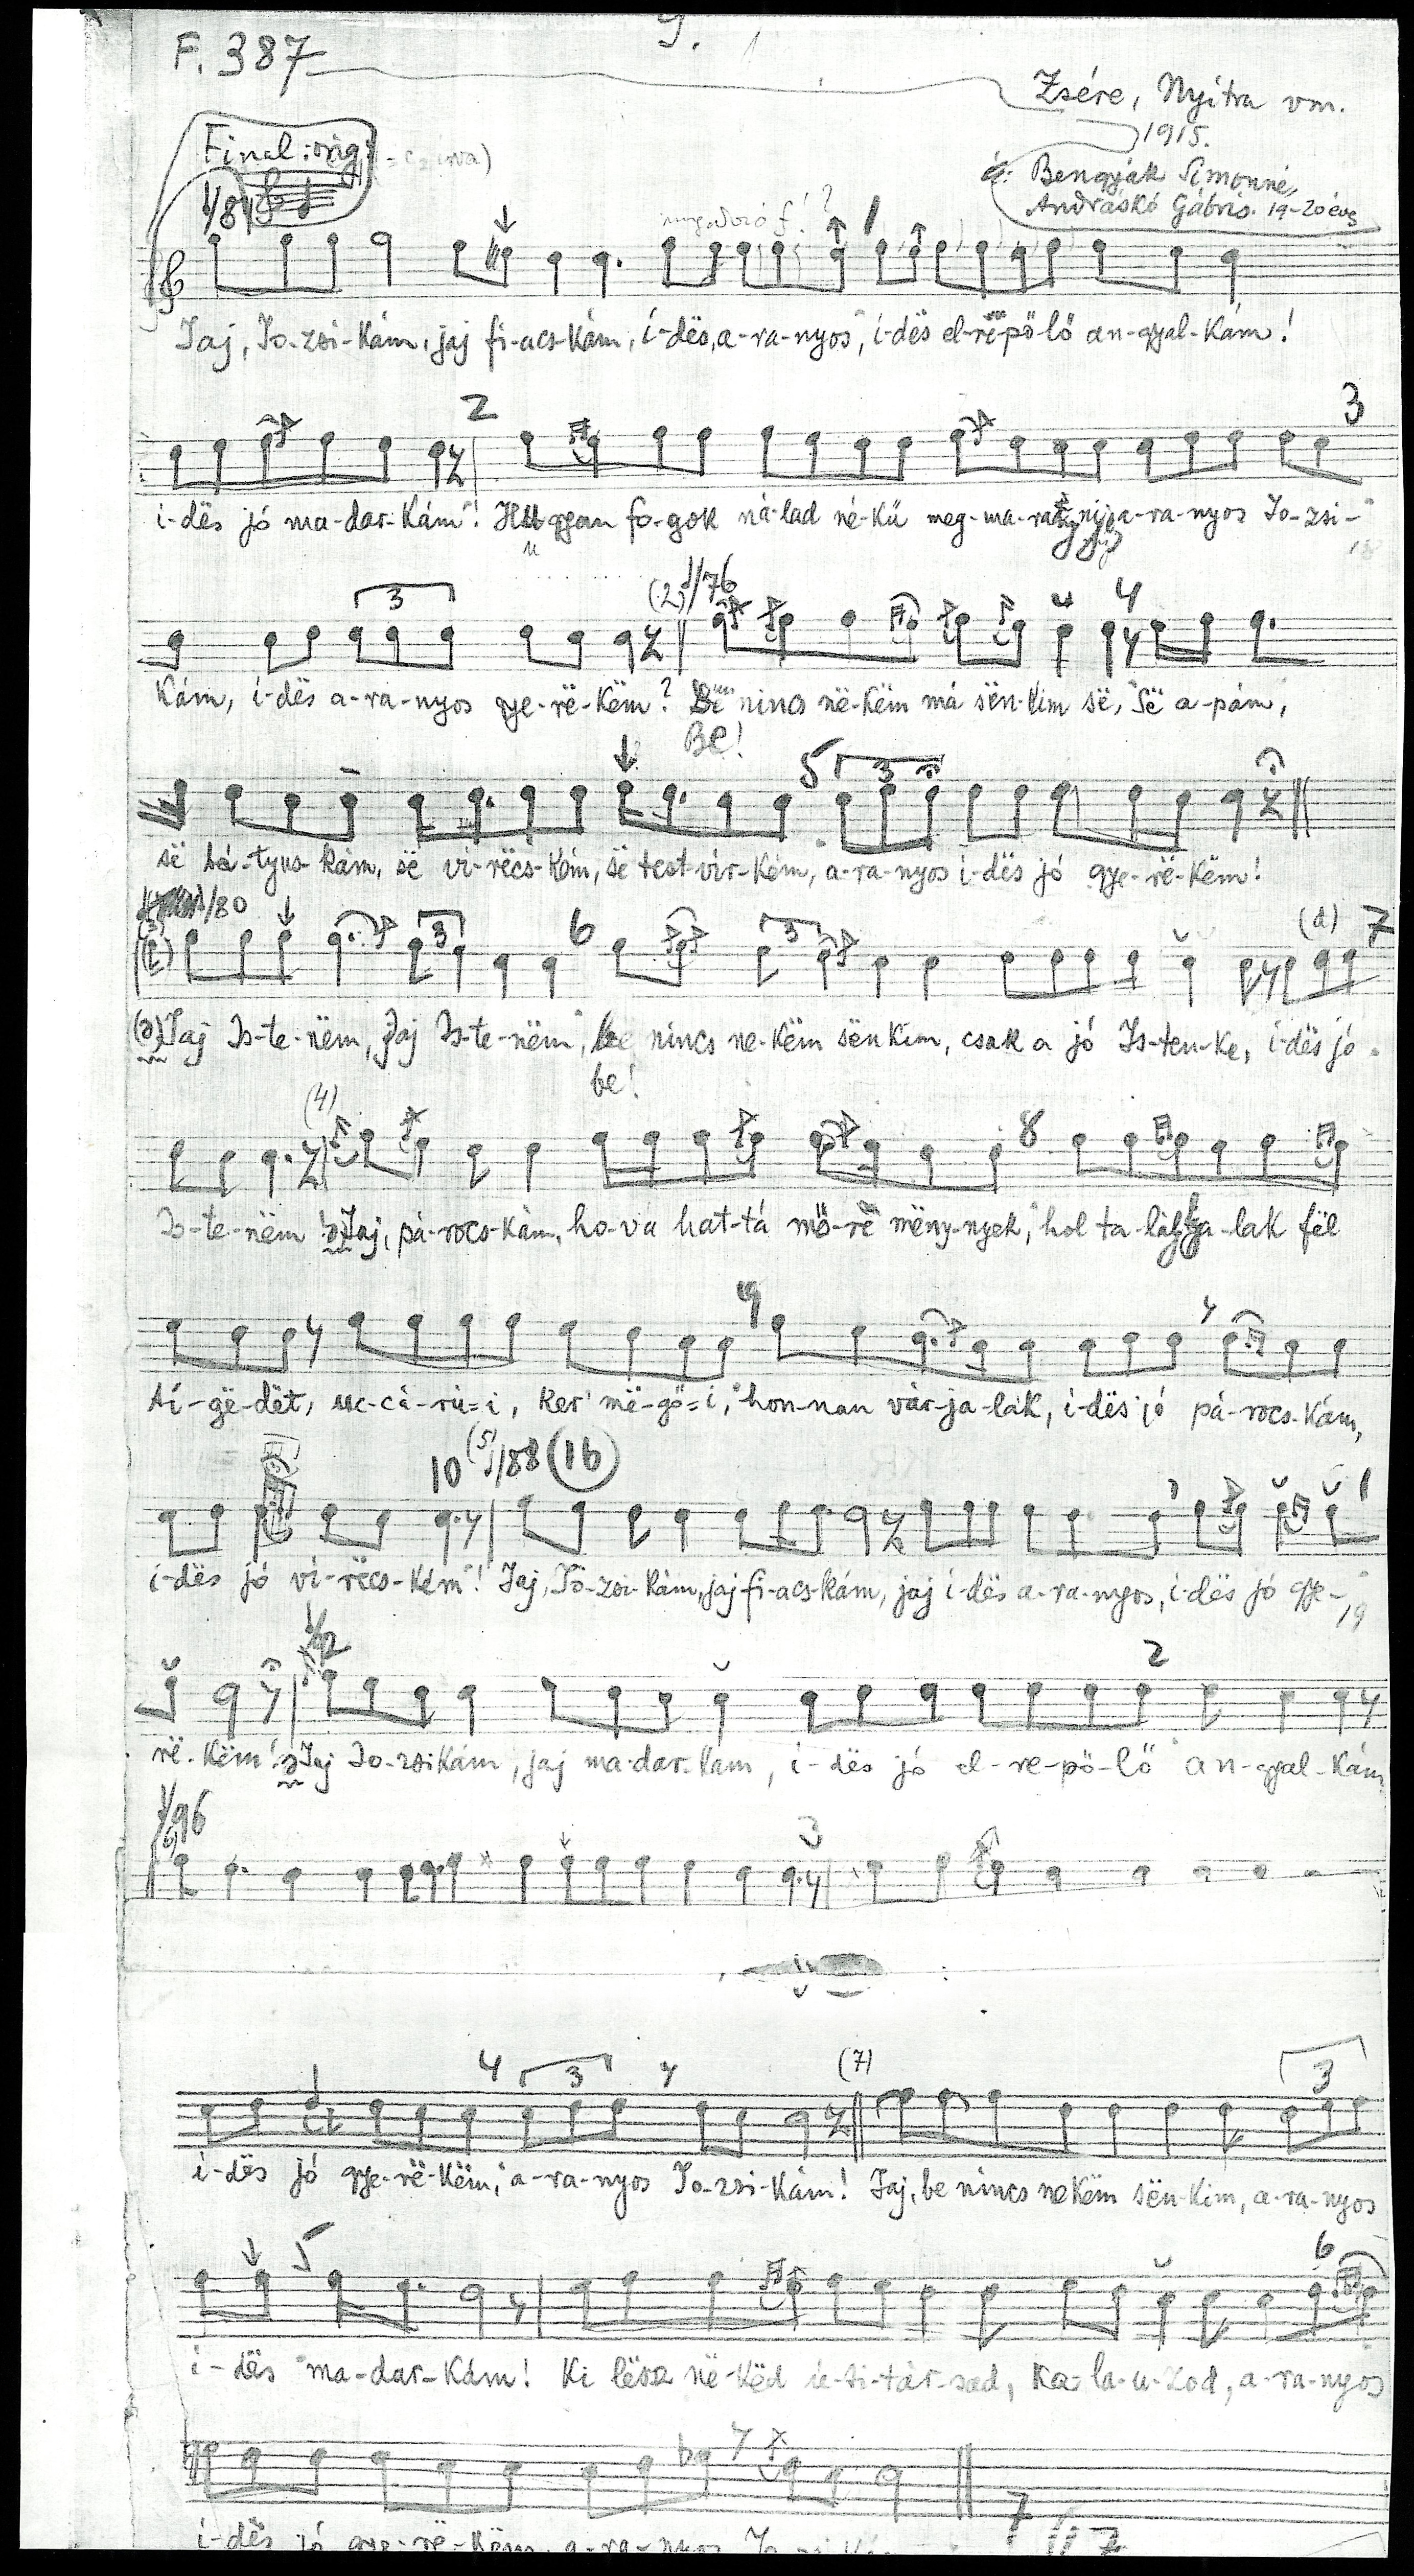 9.
F. 387
Zsére, Nyitra vm.
1915.
Bengyák Simonné,
Andráskó Gábris. 19-20 éves
Final: orig:
/84
Jaj, Jo-zsi-kám, jaj fi-acs-kám, í-dës, a-ra-nyos, í-dës el-rë-pö-lő an-gyal-kám!
2 3
i-dës jó ma-dar-kám! Hu-gyan fo-gok ná-lad né-kű meg-ma- a-ra-nyos Jo-zsi-
3 (2) /76 4
kám, í-dës a-ra-nyos gye-rë-këm? nincs në-këm má sën-kim së, së a-pám,
Be!
5 3
së bá-tyus-kám, së vi-rëcs-kém, së test-vír-kém, a-ra-nyos i-dës jó gye-rë-këm!
/80 3 6 3 (d) 7
(ə) Jaj Is-te-nëm, Jaj Is-te-nëm, nincs ne-këm sën-kim, csak a jó Is-ten-ke, i-dës jó
be!
(4) 8
Is-te-nëm! ə Jaj, pá-rocs-kám, ho-vá hat-tá mö-rë mëny-nyek, hol ta-lál- -lak fël
9
tí-gë-dët, uc-cá-rú-i, ker më-gö-i, hon-nan vár-ja-lak, i-dës jó pá-rocs-kám,
10 (5) /88 (16) 1
i-dës jó vi-rëcs-kém! Jaj, Jo-zsi-kám, jaj fi-acs-kám, jaj i-dës a-ra-nyos, i-dës jó gye-
/92 2
rë-këm! ə Jaj Jo-zsi-kám, jaj ma-dar-kam, i-dës jó el-re-pö-lő an-gyal-kám
/96
6) 3
4 3 (7) 3
i-dës jó gye-rë-këm, a-ra-nyos Jo-zsi-kám! Jaj, be nincs nekëm sën-kim, a-ra-nyos
5 6
i-dës ma-dar-kám! Ki lësz në-këd ú-ti-tár-sad, ka-la-u-zod, a-ra-nyos
7
i-dës jó gye-rë-këm, a-ra-nyos